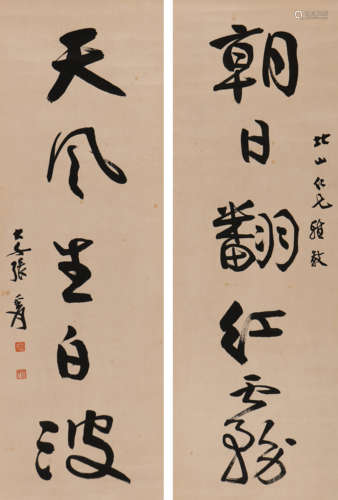 朝日翻红雾
北山仁兄雅教
天风生白波
大千張爰